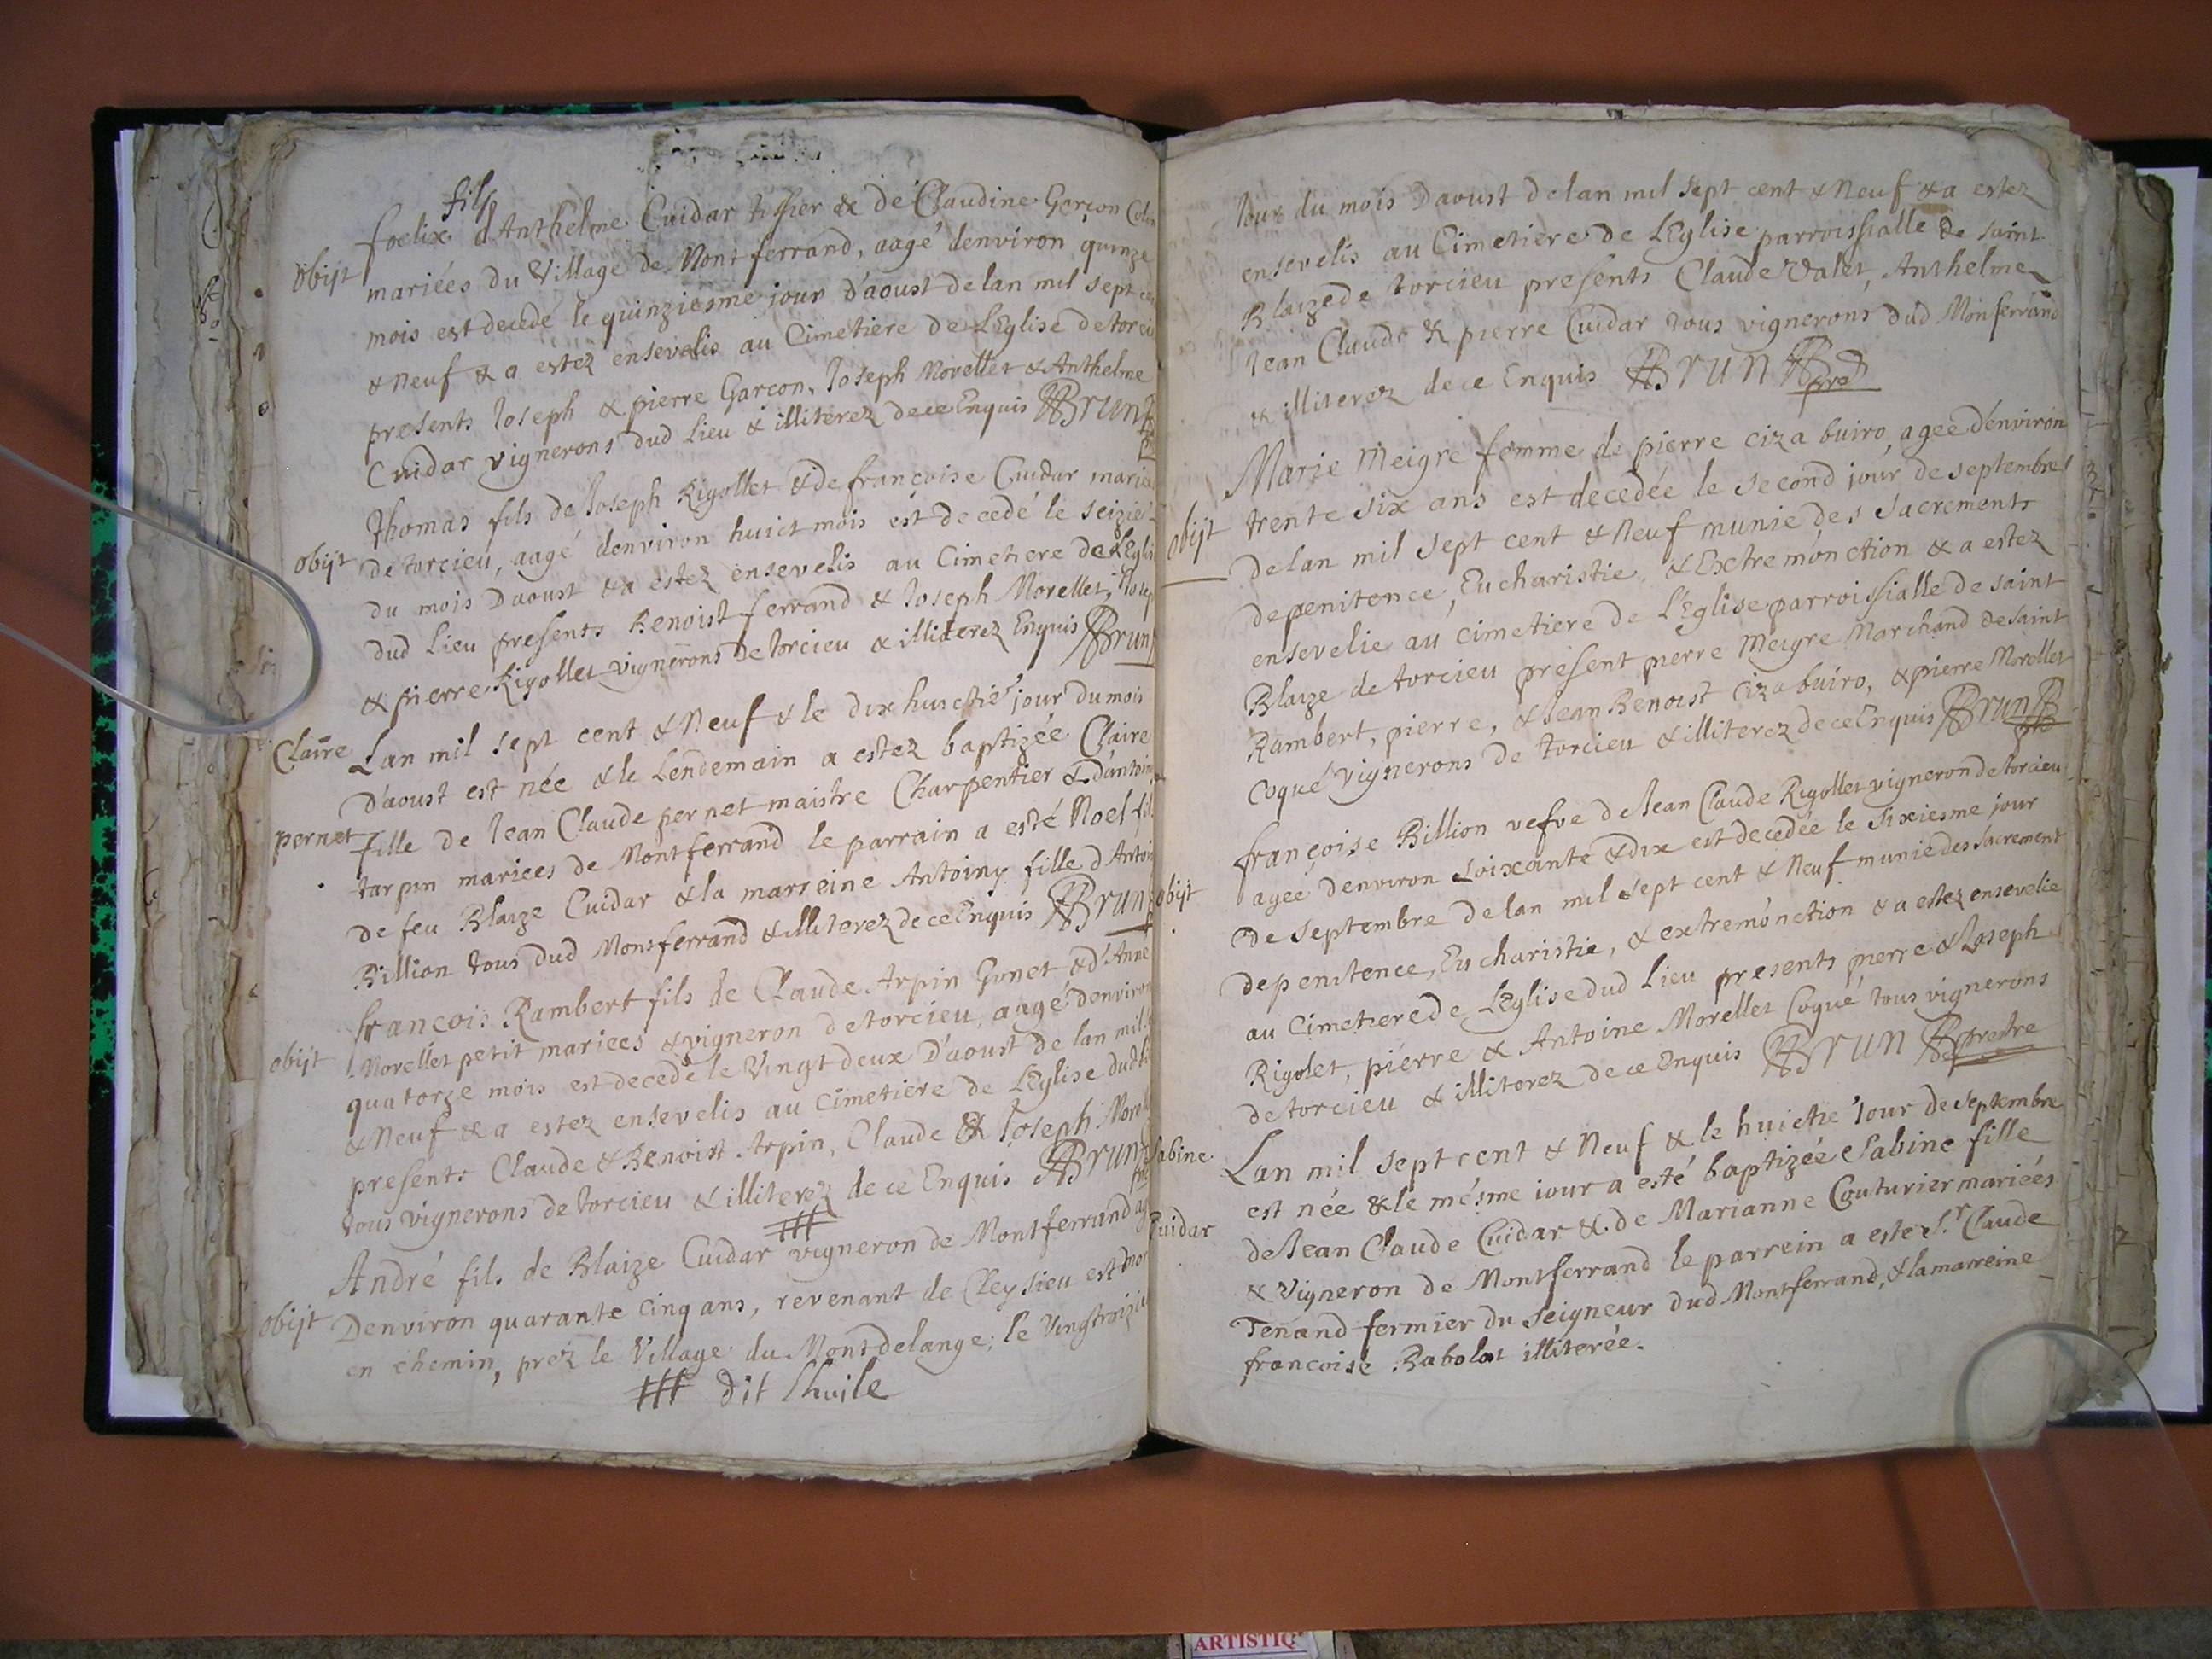 fils
foelix d'Anthelme Cuidar tissier & de Claudine Garçon
obijt
mariées du Village de Montferrand, aagé denviron quinze
mois est decede le quinziesme jour d'aoust de lan mil sept
& Neuf & a estez ensevelis au Cimetiere de LEglise de
presents Joseph & pierre Garcon, Joseph Morellet & Anthelme
Cuidar vignerons dud Lieu & illiterez de ce Enquis Brun
Thomas fils de Joseph Rigollet & de françoise Cuidar
obijt
de torcieu, aagé denviron huict mois est decedé le
du mois Daoust & a estez ensevelis au Cimetiere de
dud Lieu presents Benoist ferrand & Joseph Morellet,
& pierre Rigollet vignerons de torcieu & illiterez Enquis Brun
Claire
pernet
Lan mil sept cent & Neuf & le dix huictie jour du mois
D'aoust est née & le Lendemain a estez baptizée Claire
fille de Jean Claude pernet maistre Charpentier &
tarpin mariees de Montferrand le parrain a esté Noel
de feu Blaize Cuidar & la marreine Antoiny fille
Billion tous dud Montferrand & illiterez de ce Enquis Brun
francois Rambert fils de Claude Arpin Gonet & d'Anne
obijt
Morellet petit mariees & vigneron de torcieu, aagé
quatorze mois est decede le Vingt deux D'aoust de lan mil
& Neuf & a estez ensevelis au Cimetiere de LEglise
presents Claude & Benoist Arpin, Claude & Joseph
tous vignerons de torcieu & illiterez de ce Enquis Brun
André fils de Blaize Cuidar vigneron de Montferrand
obijt
Denviron quarante cinq ans, revenant de Cleysieu est
en chemin, prez le Village du Montdelange; le
dit Lhuile
Jour du mois Daoust de lan mil sept cent & Neuf & a estez
ensevelis au Cimetiere de LEglise parroissialle de saint
Blaize de torcieu presents Claude Valet, Anthelme
Jean Claude & pierre Cuidar tous vignerons dud Monferrand
& illiterez de ce Enquis Brun
Marie Meigre femme de pierre ciza buiro agee denviron
obijt
trente six ans est decedée le second jour de septembre
de lan mil sept cent & Neuf munie des sacrements
de penitence, Eucharistie, & Extremonction & a estez
ensevelie au cimetiere de l'Eglise parroissialle de saint
Blaize de torcieu present pierre Meigre Marchand de saint
Rambert, pierre, & Jean Benoist ciza buiro, & pierre Morellet
coqué vignerons de torcieu & illiterez de ce Enquis Brun
françoise Billion vefve de Jean Claude Rigollet vigneron de torcieu
agee denviron soixante & dix est decedée le sixiesme jour
obijt
de septembre de lan mil sept cent & Neuf munie des sacrement
de penitence, Eucharistie, & extremonction & a estez ensevelie
au Cimetiere de LEglise dud Lieu presents pierre & Joseph
Rigolet, pierre & Antoine Morellet Coqué tous vignerons
de torcieu & illiterez de ce Enquis Brun prestre
Sabine
Cuidar
Lan mil sept cent & Neuf & le huictie Jour de septembre
est née & le mésme iour a esté baptizée Sabine fille
de Jean Claude Cuidar & de Marianne Couturier mariées
& Vigneron de Montferrand le parrein a este Sr Claude
Tenand fermier du seigneur dud Montferrand, & la marreine
francoise Babolat illiterée.
ARTISTIQ